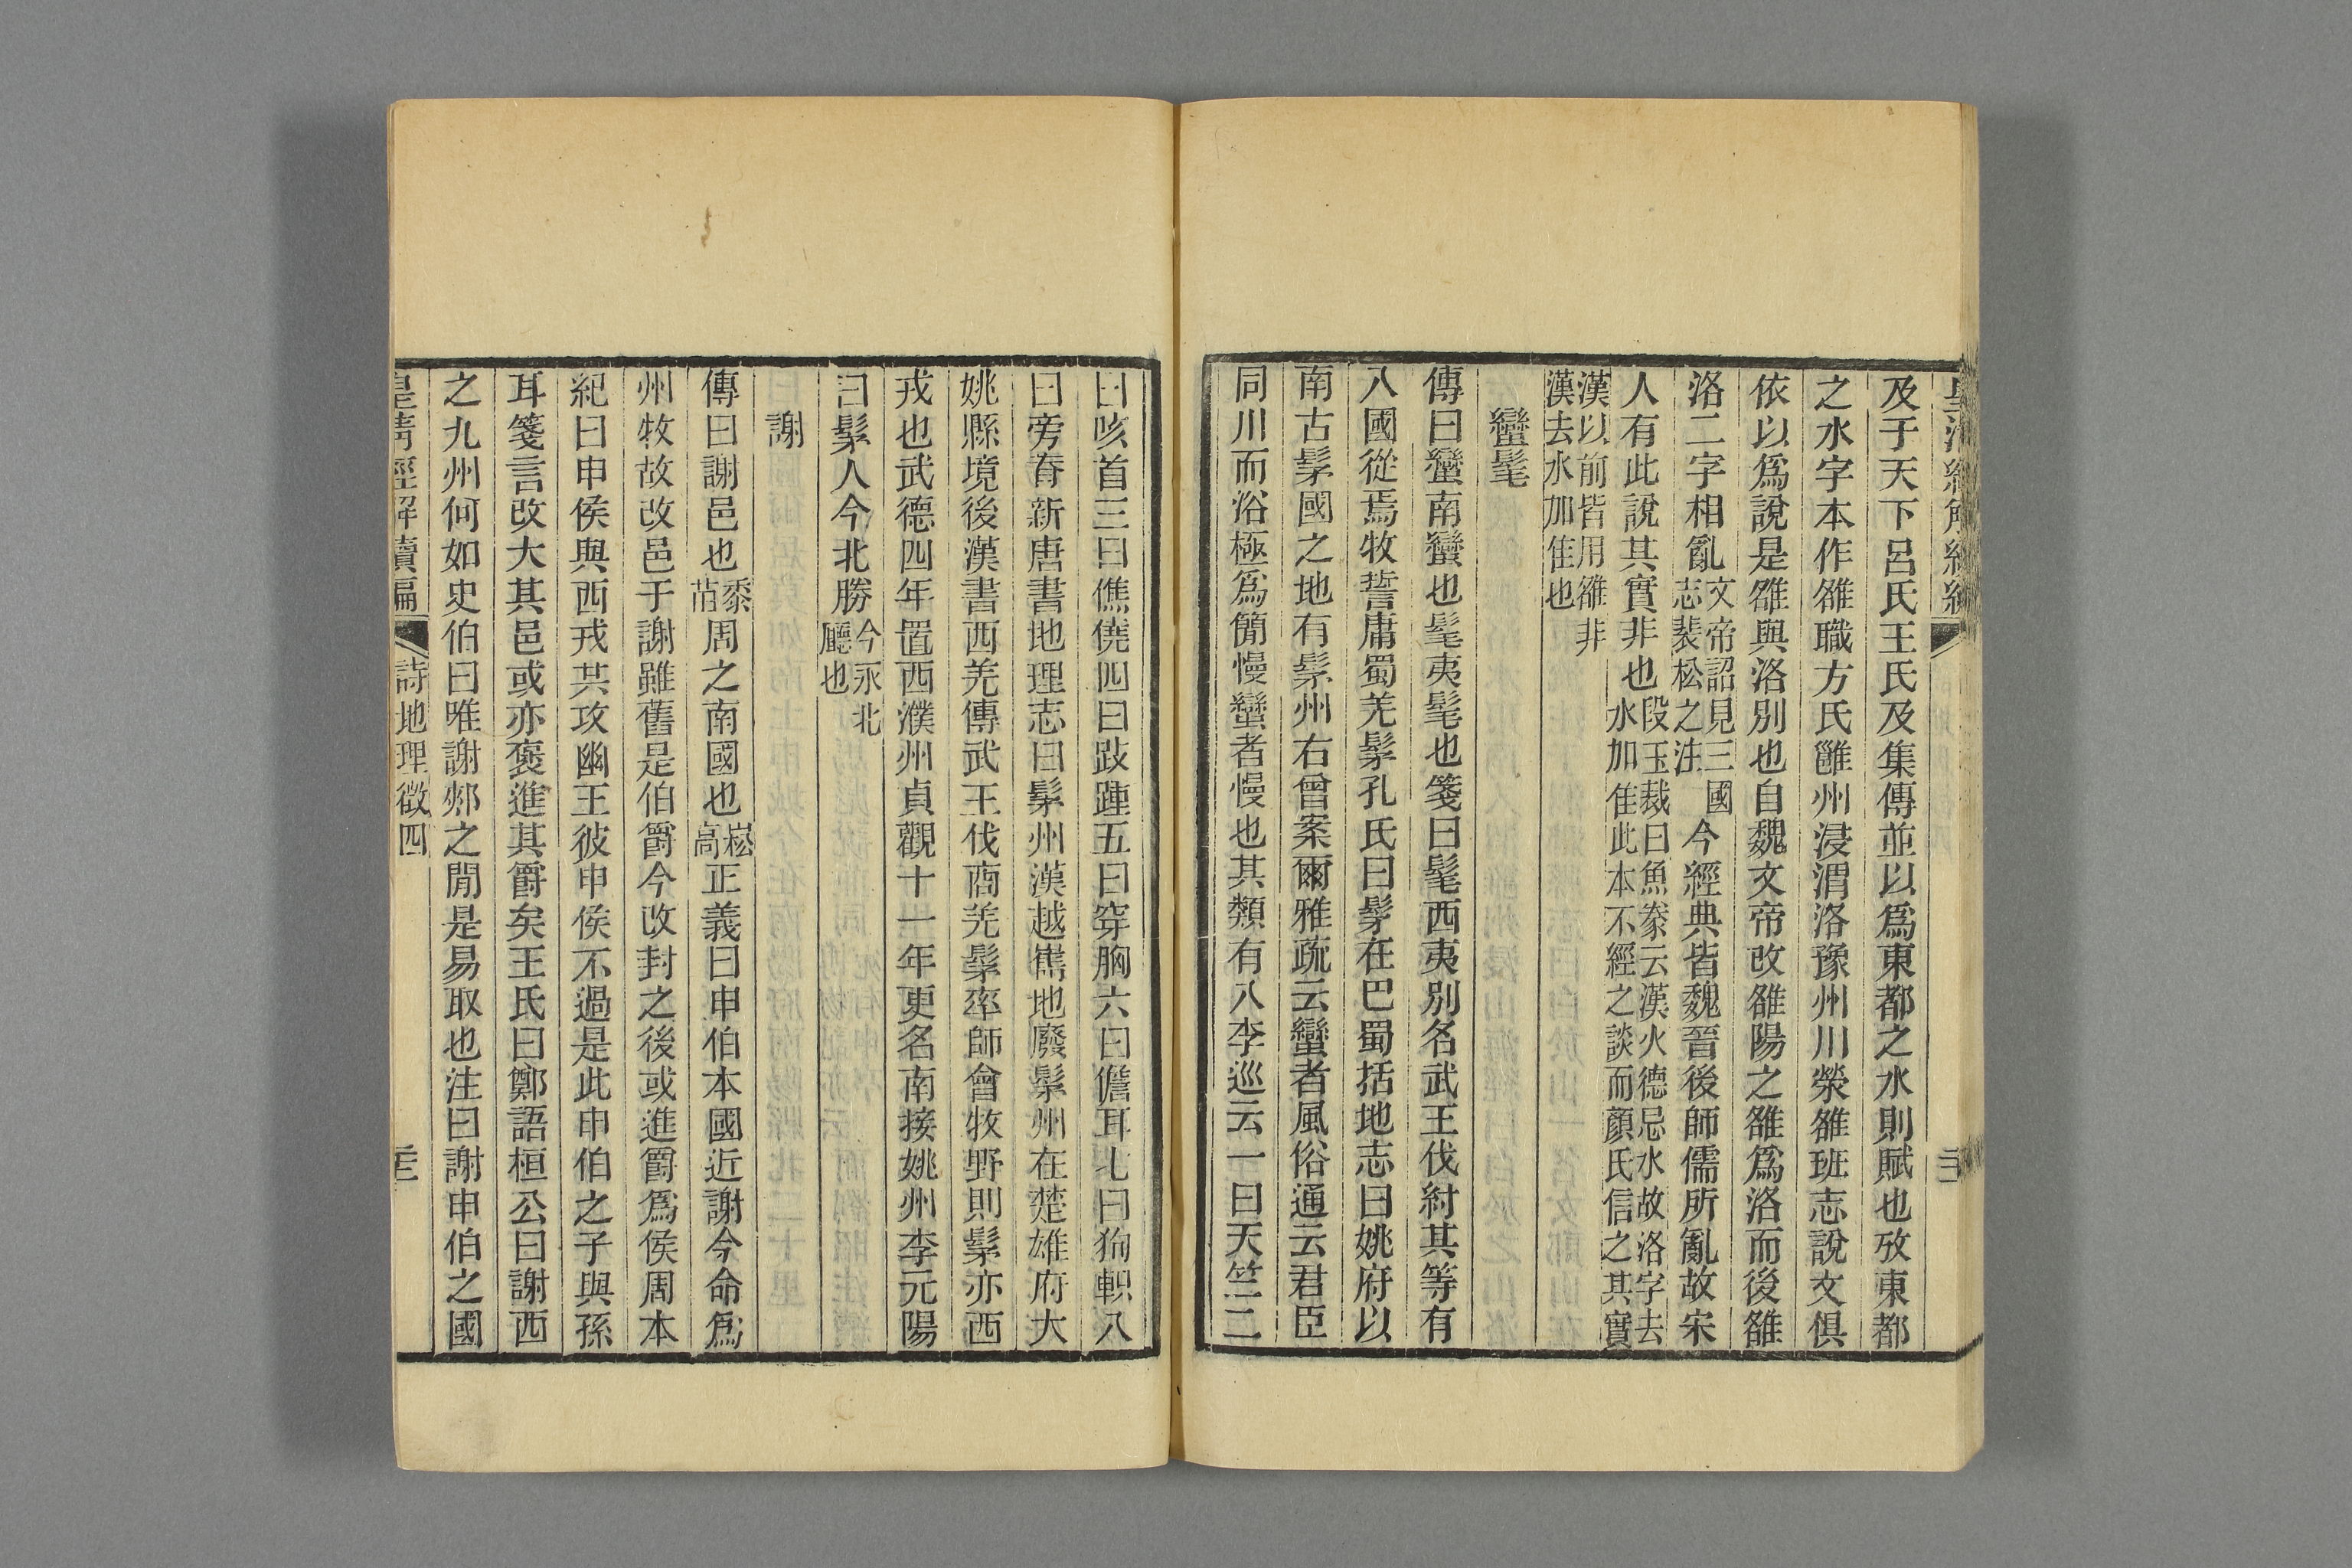 及于天下呂氏王氏及集傳並以爲東都之水則賦也攷東都
之水字本作雒職方氏雝州浸渭洛豫州川滎雒班志說文俱
依以爲說是雒與洛別也自魏文帝改雒陽之雒爲洛而後雒
洛二字相亂文帝詔見三國志裴松之注今經典皆魏晉後師儒所亂故宋
人有此說其實非也段玉裁曰魚豢云漢火德忌水故洛字去水加隹此本不經之談而顏氏信之其實
漢以前皆用雒非漢去水加隹也
蠻髦
傳曰蠻南蠻也髦夷髦也箋曰髦西夷別名武王伐紂其等有
八國從焉牧誓庸蜀羌髳孔氏曰髳在巴蜀括地志曰姚府以
南古髳國之地有髳州右曾案爾雅疏云蠻者風俗通云君臣
同川而浴極爲簡慢蠻者慢也其類有八李巡云一曰天竺二
曰咳首三曰僬僥四曰跂踵五曰穿胸六曰儋耳七曰狗軹八
曰旁脊新唐書地理志曰髳州漢越嶲地廢髳州在楚雄府大
姚縣境後漢書西羌傳武王伐商羌髳率師會牧野則髳亦西
戎也武德四年置西濮州貞觀十一年更名南接姚州李元陽
曰髳人今北勝今永北廳也
謝
傳曰謝邑也黍苗周之南國也崧高正義曰申伯本國近謝今命爲
州牧故改邑于謝雖舊是伯爵今改封之後或進爵爲侯周本
紀曰申侯與西戎共攻幽王彼申侯不過是此申伯之子與孫
耳箋言改大其邑或亦褒進其爵矣王氏曰鄭語桓公曰謝西
之九州何如史伯曰唯謝郟之閒是易取也注曰謝申伯之國
皇清經解續編 詩地理徵四